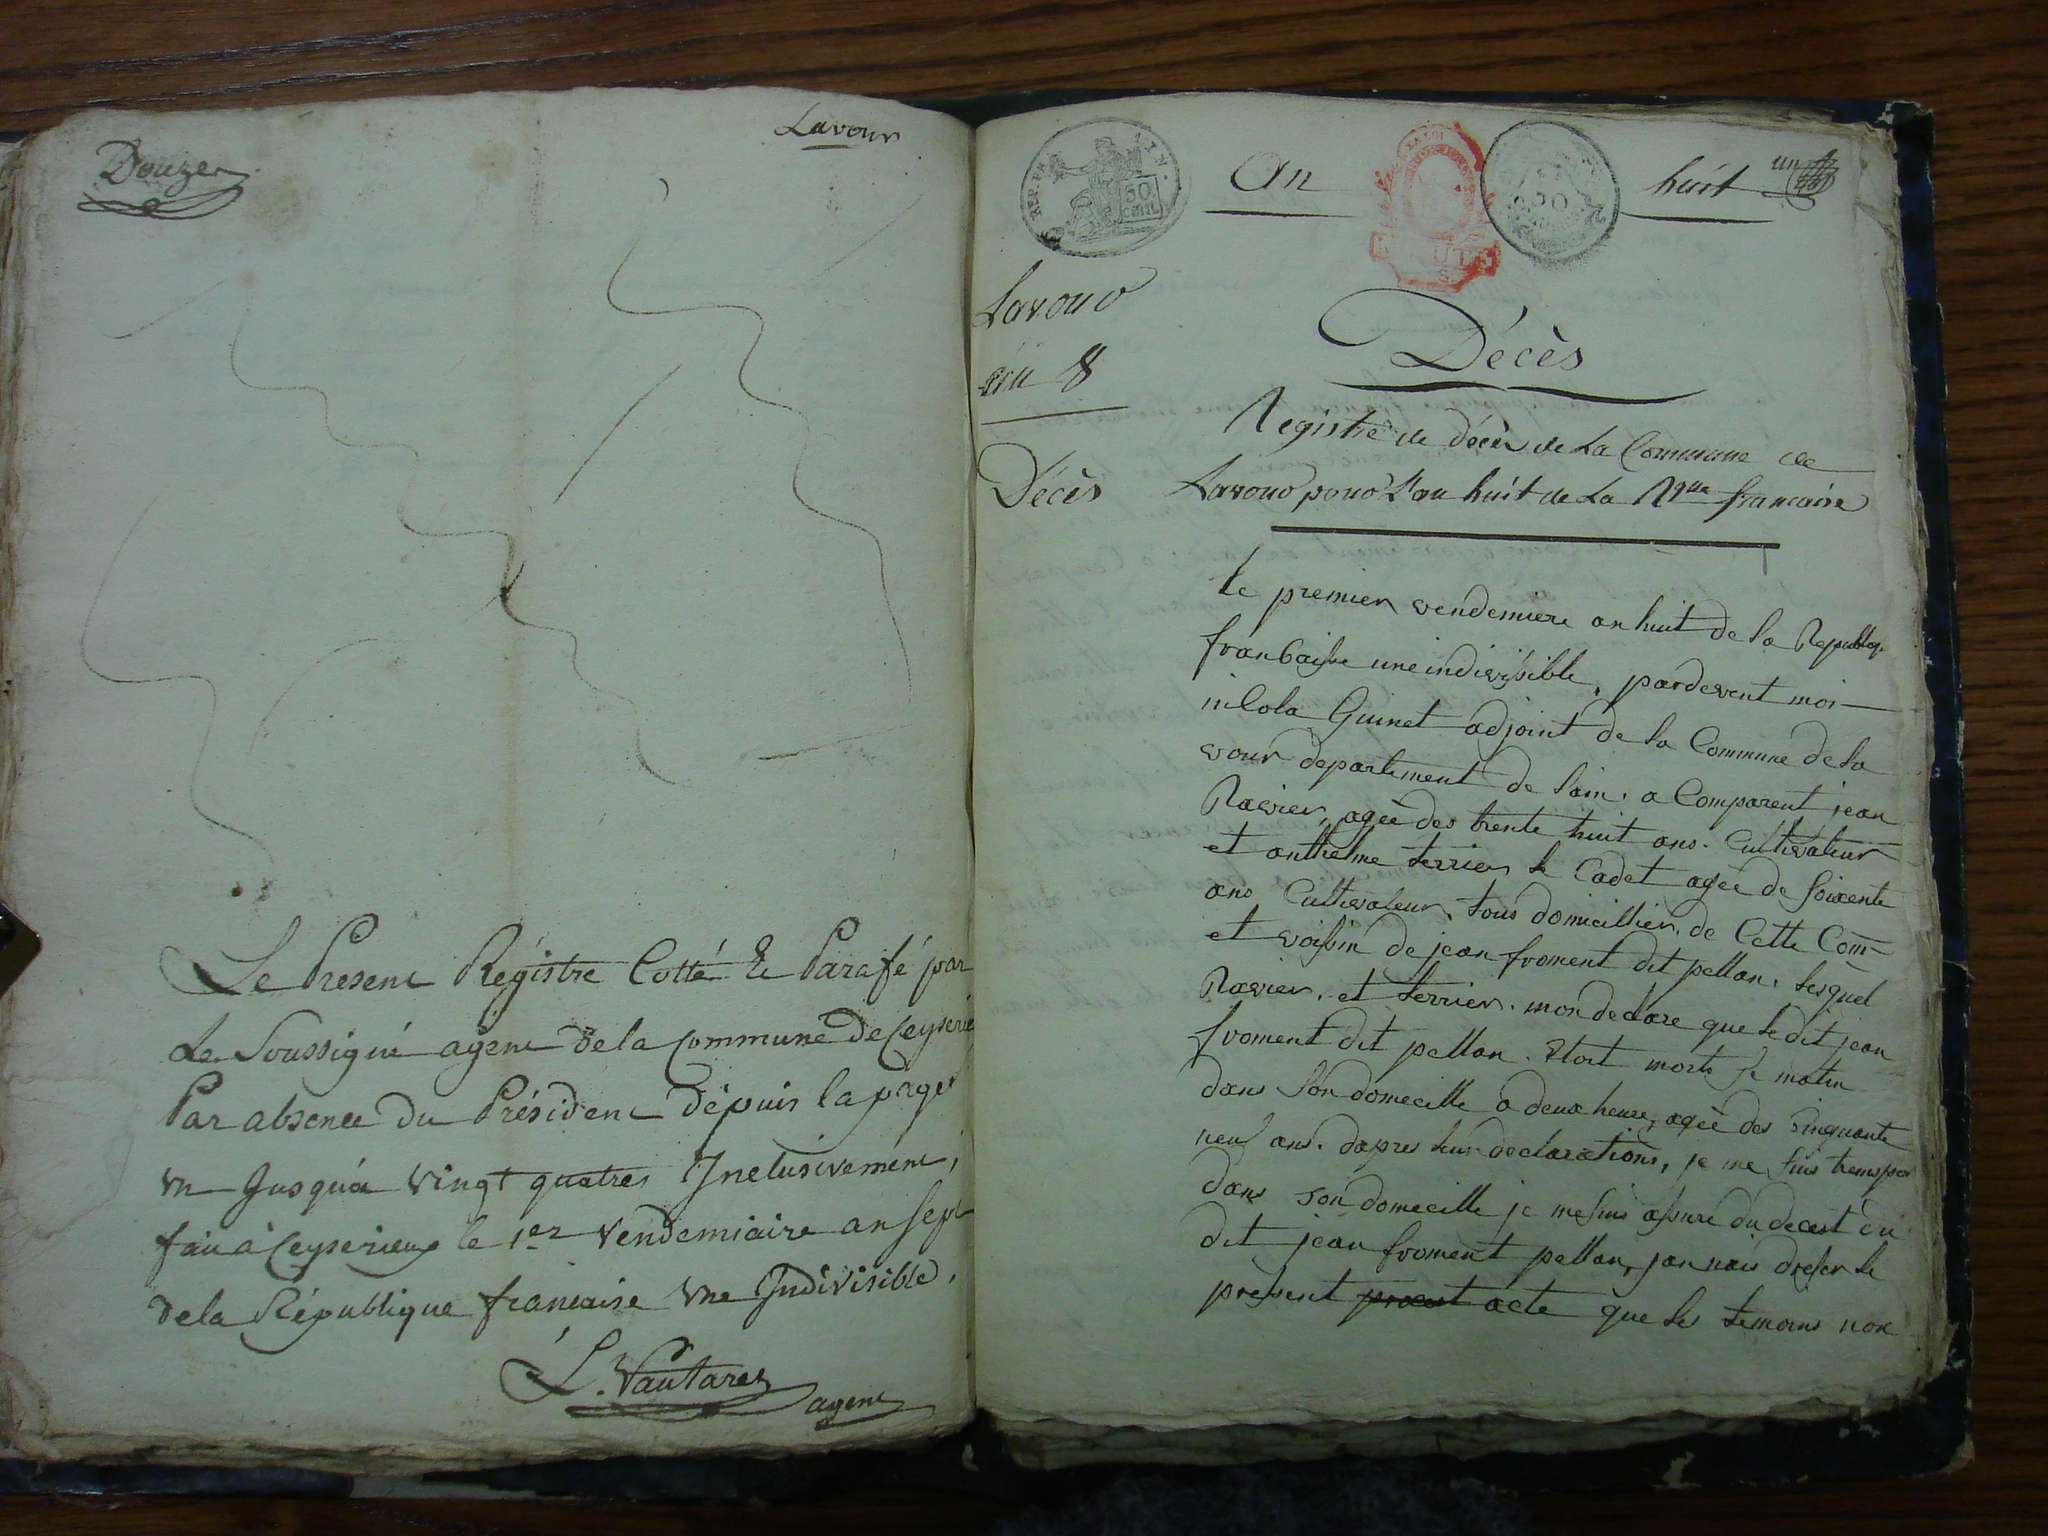 Douze
Lavour
Le Present Régistre Cotté & Parafé par
Le Soussigné agent de la commune de Ceyserie
Par absence du Président dépuis la page
un Jusqu'á vingt quatres Inclusivement,
fait à Ceyserieux le 1er vendemiaire an sept
de la République francaise une Indivisible,
L. Vautarez
agent
An huit un
REP. FRA
50
cent
50
Lavour
an 8
Décès
Décès
Registre de décès de La Commune de
Lavour pour L'an huit de La Rque francaise
le premier vendemiere an huit de la Republiq
francaisse une indivissible, pardevent moi
nicola Guinet adjoint de la Commune de la
vour departement de l'ain, a Comparent jean
Ravier, ageè des trente huit ans. Cultivateur
et anthelme terrier le Cadet ageè de soixente
ans Cultivateur, tous domicillier, de Cette Com
et voisin de jean froment dit pellan, lesquel
Ravier, et terrier, mon declare que le dit jean
froment dit pellan. Etoit morts se matin
dans son domecille a deux heure, ageè des sinquante
neuf ans. dapres leur declarations, je me suis transpor
dans son domecille je me suis assuré du decest du
dit jean froment pellan, jan nais dresser le
pressent acte que les temoins non